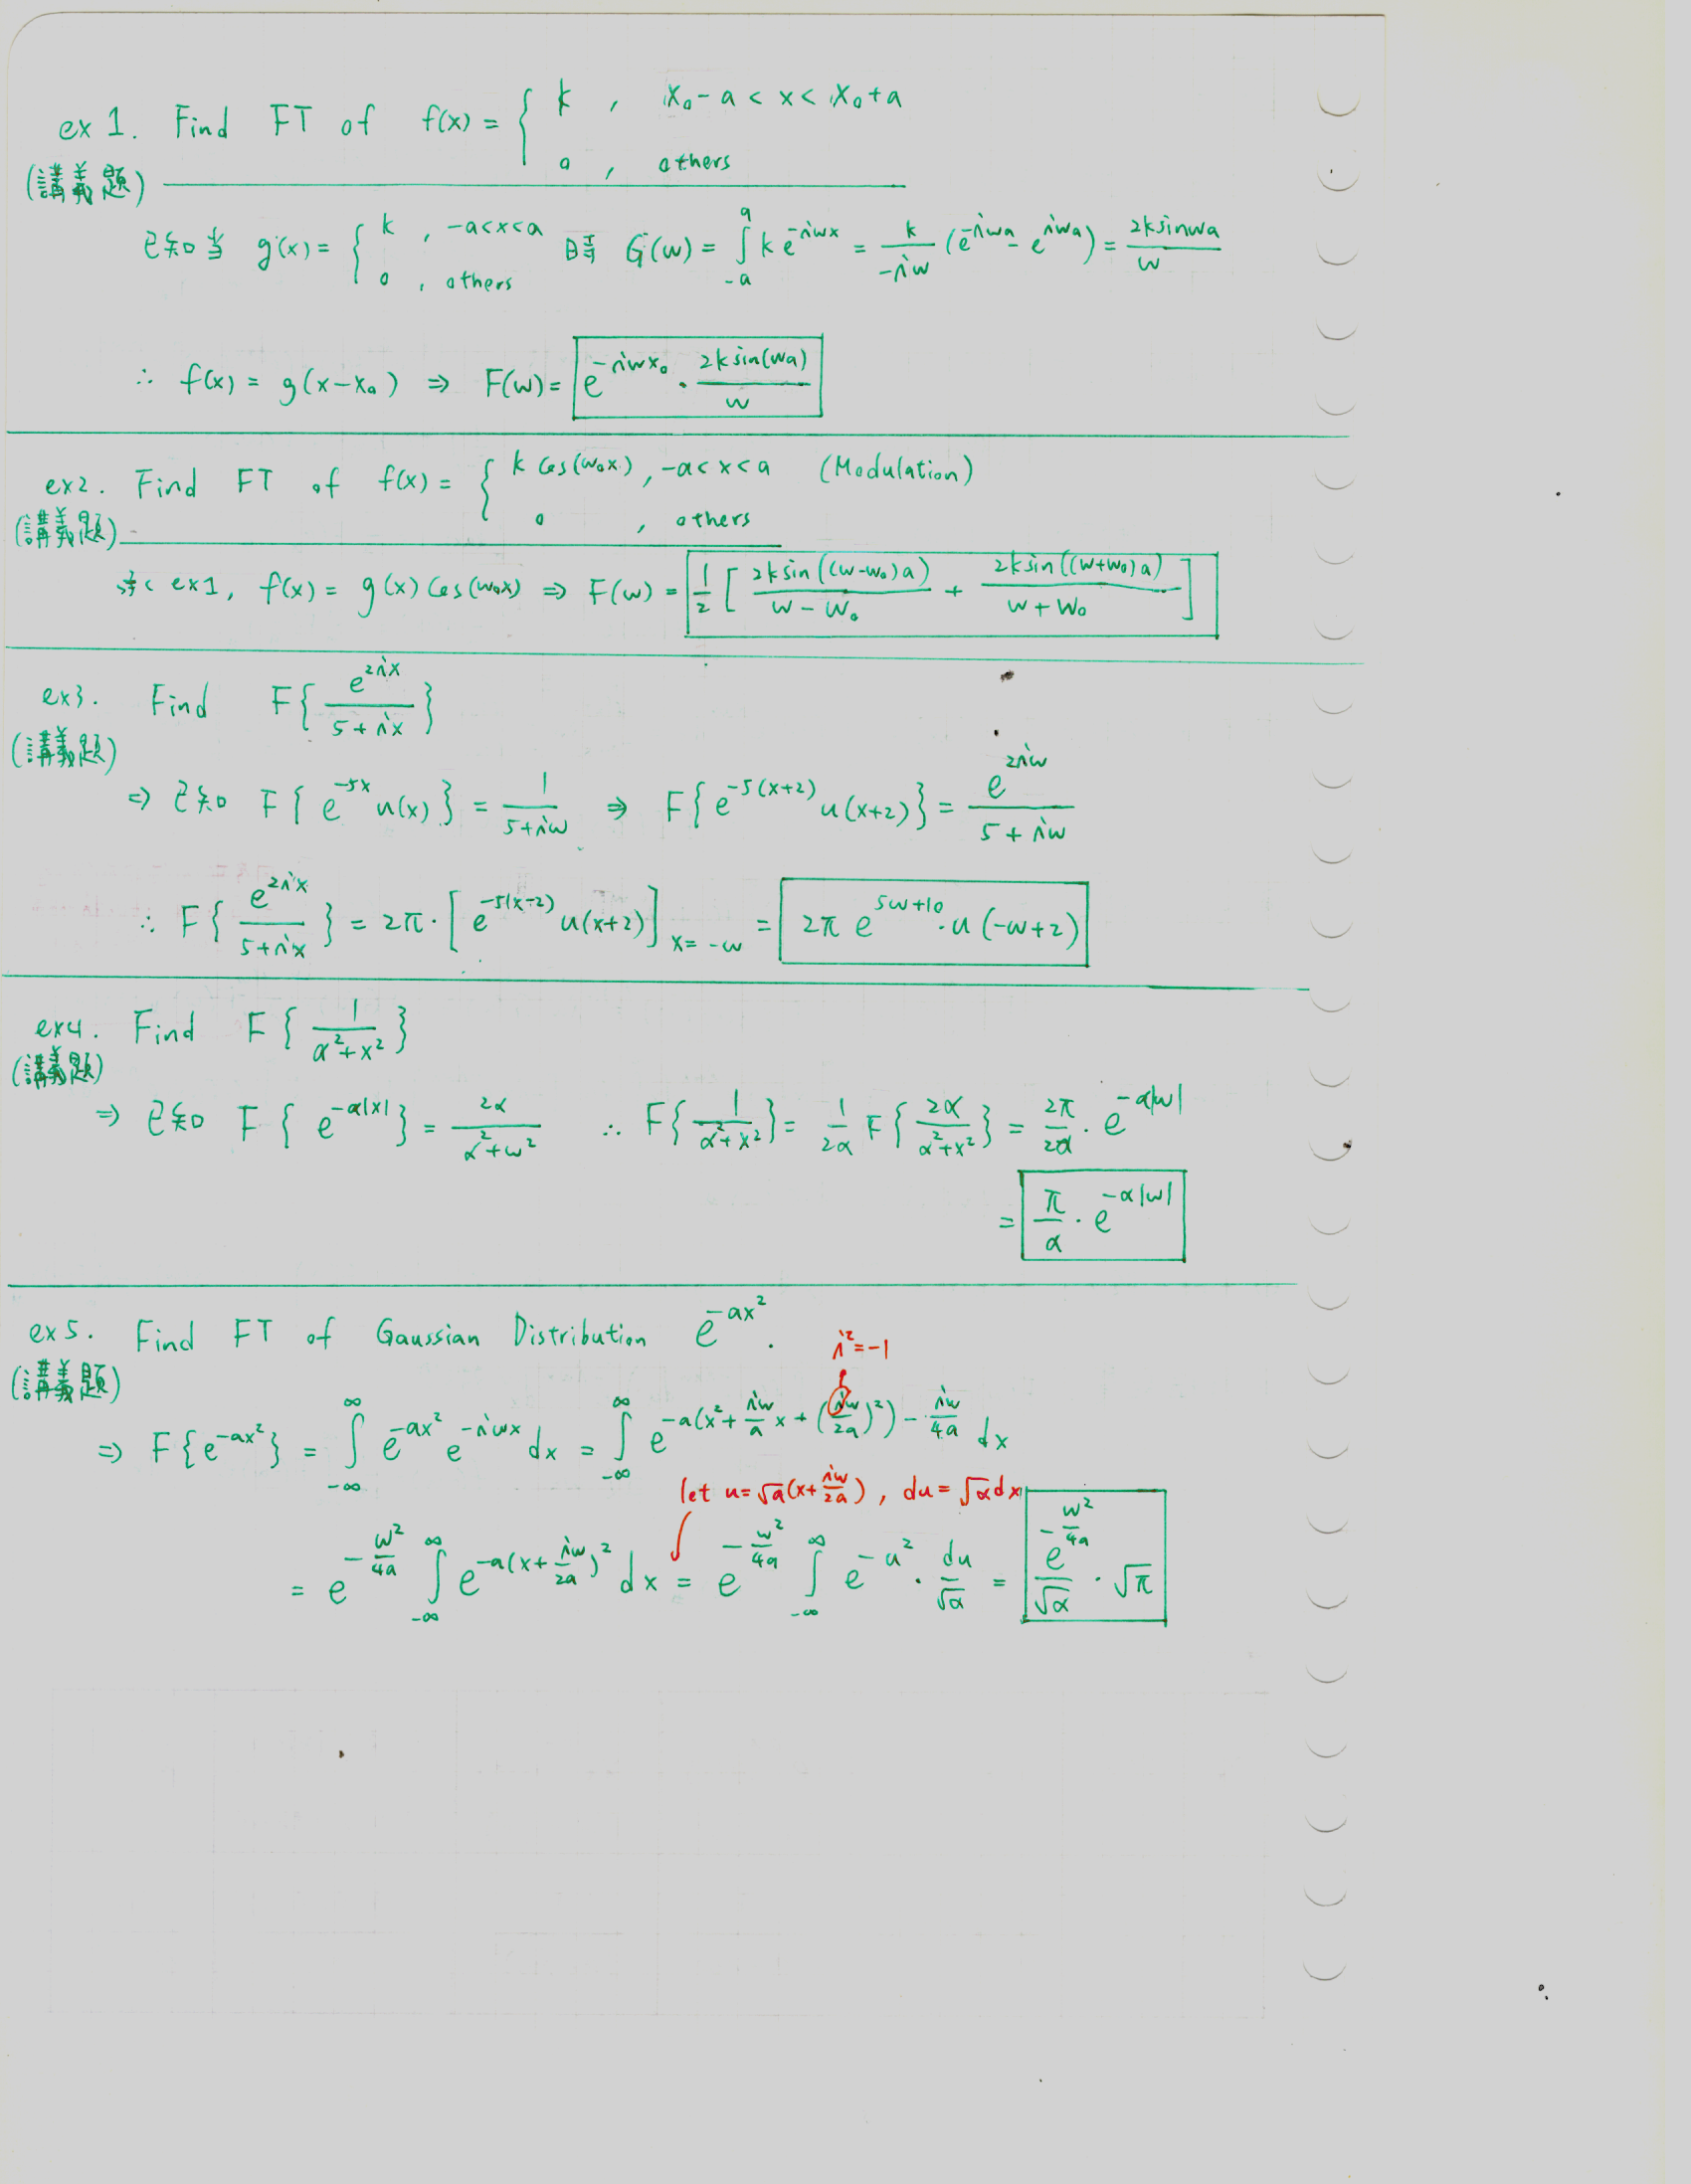 ex 1. Find FT of f(x) = { k , x₀-a < x < x₀+a
0 , others
(講義題)
已知当 g(x) = { k , -a<x<a 時 G(w) = ∫_{-a}^{a} k e^{-iwx} = k/(-iw) (e^{-iwa} - e^{iwa}) = 2ksinwa/w
0 , others
∴ f(x) = g(x-x₀) ⇒ F(w) = e^{-iwx₀} · 2k sin(wa)/w
ex2. Find FT of f(x) = { k cos(w₀x) , -a< x < a (Modulation)
0 , others
(講義題)
ex1, f(x) = g(x) cos(w₀x) ⇒ F(w) = 1/2 [ 2k sin((w-w₀)a)/(w-w₀) + 2k sin((w+w₀)a)/(w+w₀) ]
ex3. Find F{ e^{2ix}/(5+ix) }
(講義題)
⇒ 已知 F{ e^{-5x} u(x) } = 1/(5+iw) ⇒ F{ e^{-5(x+2)} u(x+2) } = e^{2iw}/(5+iw)
∴ F{ e^{2ix}/(5+ix) } = 2π · [ e^{-5(x-2)} u(x+2) ]_{x=-w} = 2π e^{5w+10} · u(-w+2)
ex4. Find F{ 1/(α²+x²) }
(講義題)
⇒ 已知 F{ e^{-α|x|} } = 2α/(α²+w²) ∴ F{ 1/(α²+x²) } = 1/(2α) F{ 2α/(α²+x²) } = 2π/(2α) · e^{-α|w|}
= π/α · e^{-α|w|}
ex5. Find FT of Gaussian Distribution e^{-ax²}.
i²=-1
(講義題)
⇒ F{e^{-ax²}} = ∫_{-∞}^{∞} e^{-ax²} e^{-iwx} dx = ∫_{-∞}^{∞} e^{-a(x²+(iw/a)x+(iw/2a)²)-iw/4a} dx
let u=√a(x+iw/2a), du=√a dx
= e^{-w²/4a} ∫_{-∞}^{∞} e^{-a(x+iw/2a)²} dx = e^{-w²/4a} ∫_{-∞}^{∞} e^{-u²} · du/√a = e^{-w²/4a}/√a · √π